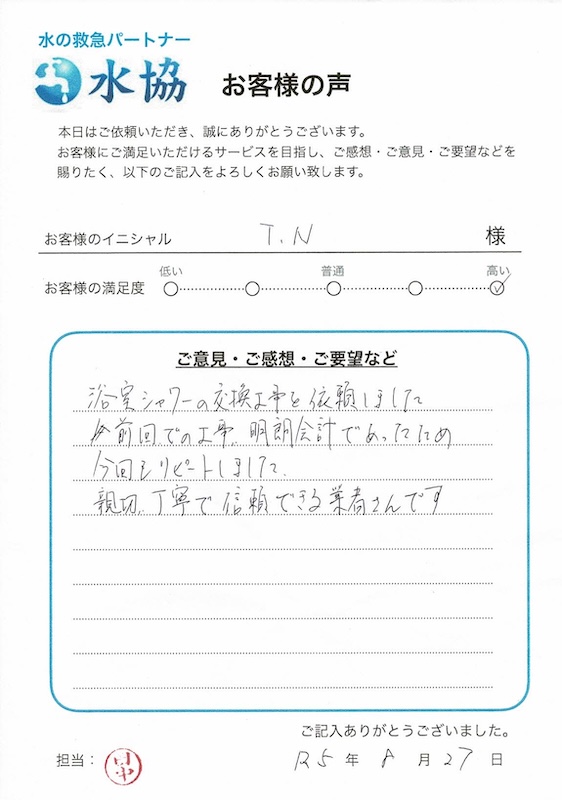 水の救急パートナー
水協 お客様の声
本日はご依頼いただき、誠にありがとうございます。
お客様にご満足いただけるサービスを目指し、ご感想・ご意見・ご要望などを
賜りたく、以下のご記入をよろしくお願い致します。
お客様のイニシャル T.N 様
低い 普通 高い
お客様の満足度
ご意見・ご感想・ご要望など
浴室シャワーの交換工事を依頼しました
前回での工事、明朗会計であったため
今回もリピートしました、
親切、丁寧で信頼できる業者さんです
ご記入ありがとうございました。
担当: 田中 R5年 8月27日